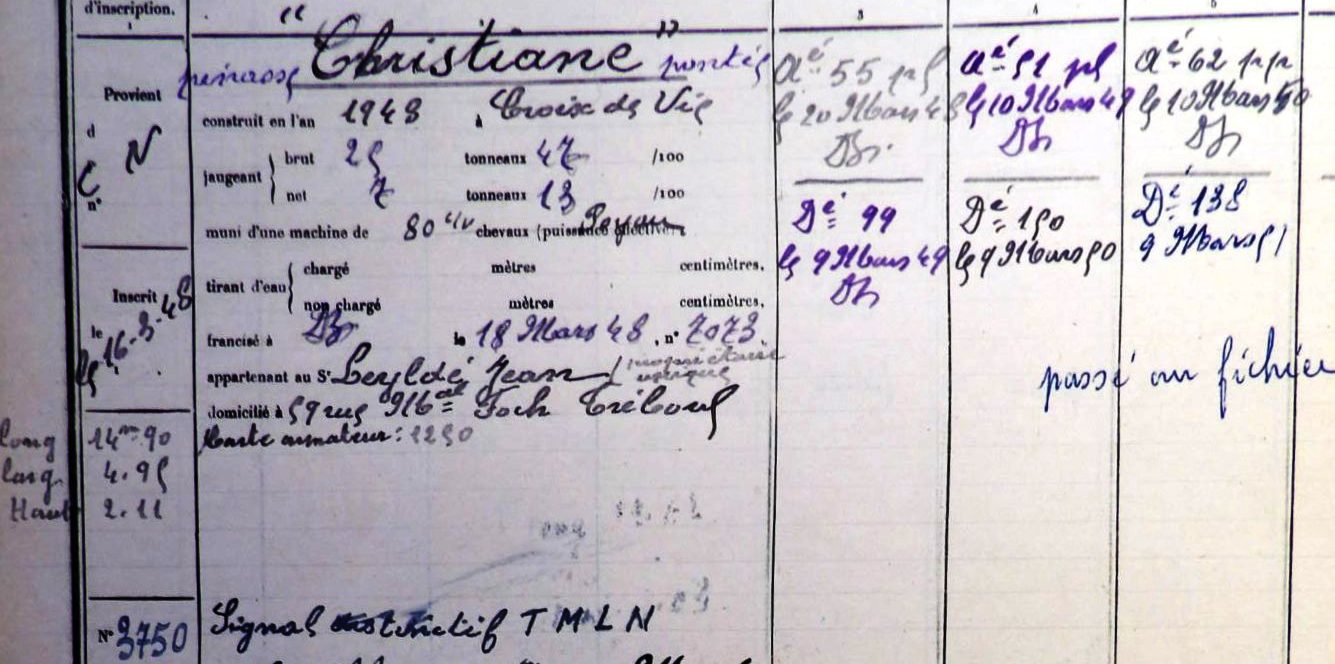 d'inscription.
1
3
4
5
Provient
d
C N
n°
Inscrit
le
le 16-3-48
long 14m90
larg 4.95
Haut 2.11
N° 3750
"Christiane"
pinasse pontée
construit en l'an 1948 à Croix de Vie
jaugeant brut 25 tonneaux 47 /100
net 7 tonneaux 13 /100
muni d'une machine de 80 c/v chevaux (puissance effective)
tirant d'eau chargé mètres centimètres.
non chargé mètres centimètres.
francisé à Dz le 18 Mars 48, n° 7073.
appartenant au Sr Leyldé Jean / propriétaire unique
domicilié à 59 rue Mal Foch Tréboul
Carte armateur: 1250
Signal distinctif T M L N
Aé 55 pl
le 20 Mars 48
Dz.
Dé 99
le 9 Mars 49
Dz
Aé 51 pl
le 10 Mars 49
Dz
Dé 150
le 9 Mars 50
Aé 62 pp
le 10 Mars 50
Dz
Dé 138
9 Mars 51
passé au fichier